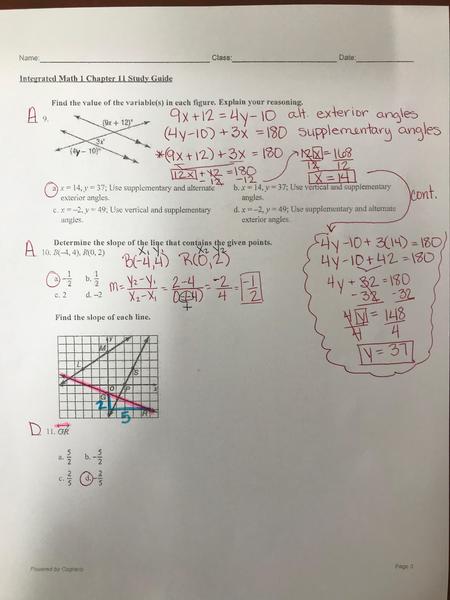 Name: Class: Date:
Integrated Math 1 Chapter 11 Study Guide
Find the value of the variable(s) in each figure. Explain your reasoning.
A 9.
(9x + 12)°
3x°
(4y – 10)°
9x+12 = 4y-10 alt. exterior angles
(4y-10) + 3x = 180 supplementary angles
*(9x+12) + 3x = 180
12x + 12 = 180
-12 -12
12x = 168
12 12
x = 14
cont.
a. x = 14, y = 37; Use supplementary and alternate exterior angles.
b. x = 14, y = 37; Use vertical and supplementary angles.
c. x = –2, y = 49; Use vertical and supplementary angles.
d. x = –2, y = 49; Use supplementary and alternate exterior angles.
4y-10+3(14)=180
4y-10+42=180
4y+32=180
-32 -32
4y = 148
4 4
y = 37
Determine the slope of the line that contains the given points.
A 10. B(–4, 4), R(0, 2)
X₁ Y₁ X₂ Y₂
B(-4,4) R(0,2)
a. –1/2 b. 1/2
c. 2 d. –2
M = Y₂-Y₁/X₂-X₁ = 2-4/0--4 = -2/4 = -1/2
+
Find the slope of each line.
y
M
L
S
O
P
x
G
R
2
5
D 11. GR
a. 5/2 b. –5/2
c. 2/5 d. –2/5
Powered by Cognero
Page 3